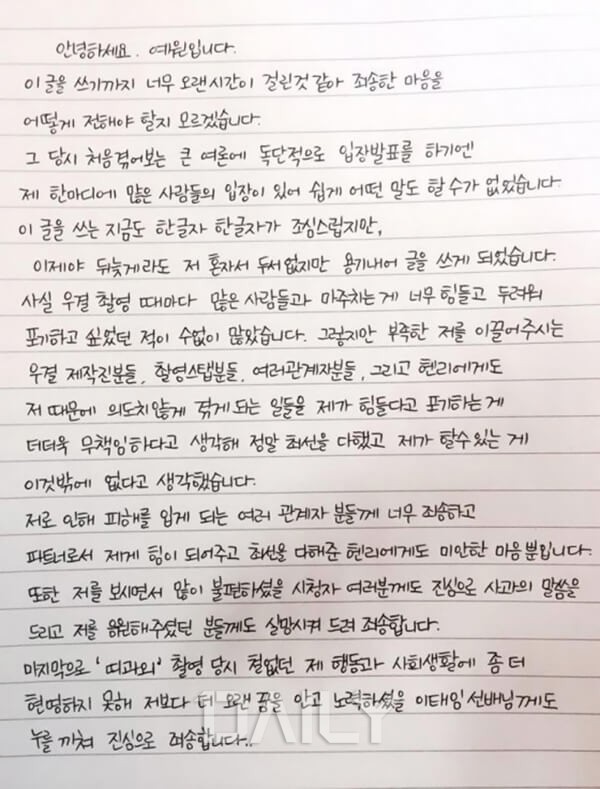 안녕하세요. 예원입니다.
이 글을 쓰기까지 너무 오랜시간이 걸린것 같아 죄송한 마음을
어떻게 전해야 할지 모르겠습니다.
그 당시 처음겪어보는 큰 여론에 독단적으로 입장발표를 하기엔
제 한마디에 많은 사람들의 입장이 있어 쉽게 어떤 말도 할 수가 없었습니다.
이 글을 쓰는 지금도 한글자 한글자가 조심스럽지만,
이제야 뒤늦게라도 저 혼자서 두서없지만 용기내어 글을 쓰게 되었습니다.
사실 우결 촬영 때마다 많은 사람들과 마주치는게 너무 힘들고 두려워
포기하고 싶었던 적이 수없이 많았습니다. 그렇지만 부족한 저를 이끌어주시는
우결 제작진분들, 촬영스탭분들, 여러관계자분들, 그리고 헨리에게도
저 때문에 의도치않게 겪게 되는 일들을 제가 힘들다고 포기하는게
더더욱 무책임하다고 생각해 정말 최선을 다했고 제가 할수 있는 게
이것밖에 없다고 생각했습니다.
저로 인해 피해를 입게 되는 여러 관계자 분들께 너무 죄송하고
파트너로서 제게 힘이 되어주고 최선을 다해준 헨리에게도 미안한 마음뿐입니다.
또한 저를 보시면서 많이 불편하셨을 시청자 여러분께도 진심으로 사과의 말씀을
드리고 저를 응원해주셨던 분들께도 실망시켜 드려 죄송합니다.
마지막으로 '띠과외' 촬영 당시 철없던 제 행동과 사회생활에 좀 더
현명하지 못해 저보다 더 오랜 꿈을 안고 노력하셨을 이태임 선배님께도
누를 끼쳐 진심으로 죄송합니다..
DAILY